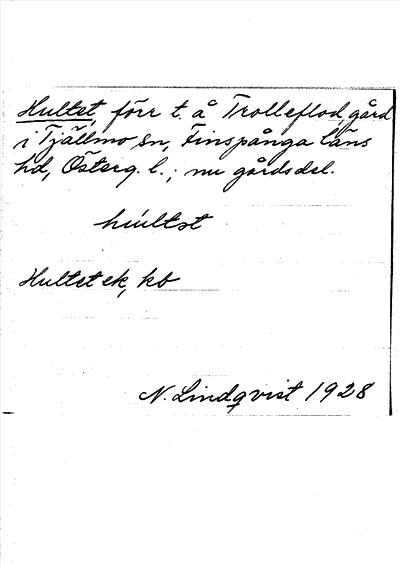 Hultet, förr t. å Trolleflod, gård
i Tjällmo sn, Finspånga läns
hd, Österg. l.; nu gårdsdel.
Hultet ek, kb
N. Lindqvist 1928